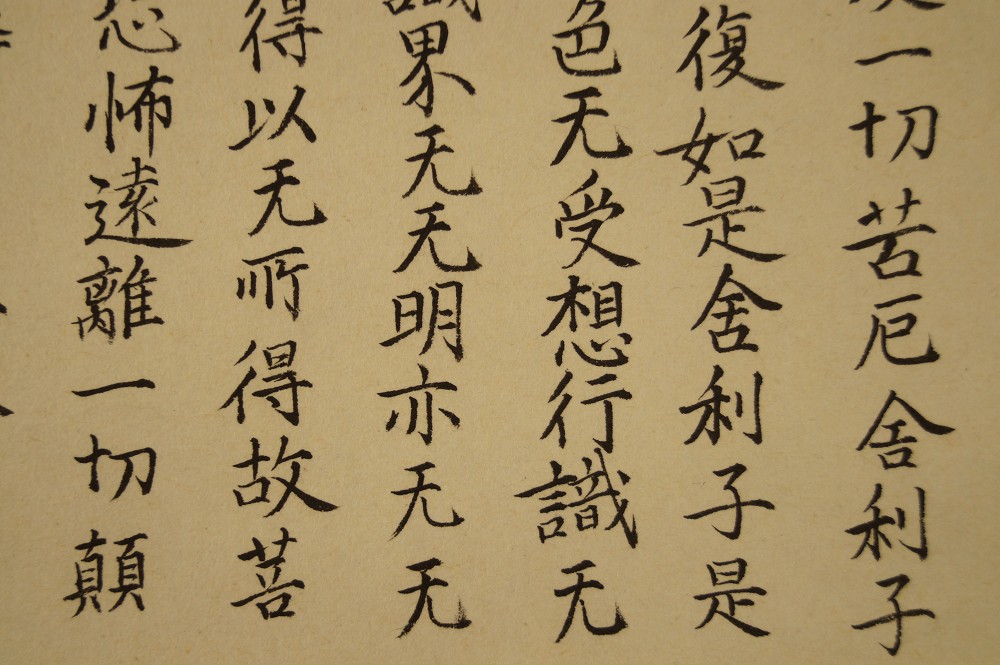 一切苦厄舍利子
復如是舍利子是
色无受想行識无
識界无无明亦无无
得以无所得故菩
恐怖遠離一切顛